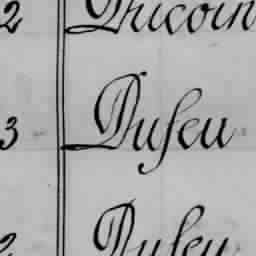 2 Duicoin
3 Dufeu
2 Dufeu